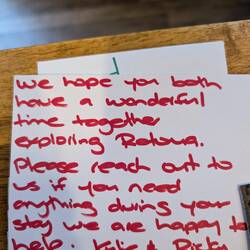 We hope you both
have a wonderful
time together
exploring Rotorua.
Please reach out to
us if you need
anything during your
stay we are happy to
help.